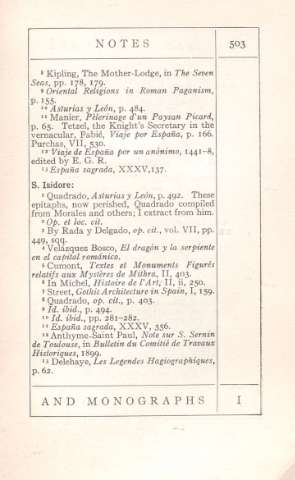 NOTES 503
⁸ Kipling, The Mother-Lodge, in The Seven
Seas, pp. 178, 179.
⁹ Oriental Religions in Roman Paganism,
p. 155.
¹⁰ Asturias y León, p. 484.
¹¹ Manier, Pèlerinage d'un Paysan Picard,
p. 65. Tetzel, the Knight's Secretary in the
vernacular, Fabié, Viaje por España, p. 166.
Purchas, VII, 530.
¹² Viaje de España por un anónimo, 1441-8,
edited by E. G. R.
¹³ España sagrada, XXXV, 137.
S. Isidore:
¹ Quadrado, Asturias y León, p. 492. These
epitaphs, now perished, Quadrado compiled
from Morales and others; I extract from him.
² Op. et loc. cit.
³ By Rada y Delgado, op. cit., vol. VII, pp.
449, sqq.
⁴ Velazquez Bosco, El dragón y la serpiente
en el capital románico.
⁵ Cumont, Textes et Monuments Figurés
relatifs aux Mystères de Mithra, II, 403.
⁶ In Michel, Histoire de l'Art, II, ii, 250.
⁷ Street, Gothic Architecture in Spain, I, 159.
⁸ Quadrado, op. cit., p. 403.
⁹ Id. ibid., p. 494.
¹⁰ Id. ibid., pp. 281-282.
¹¹ España sagrada, XXXV, 356.
¹² Anthyme-Saint Paul, Note sur S. Sernin
de Toulouse, in Bulletin du Comitié de Travaux
Historiques, 1899.
¹³ Delehaye, Les Legendes Hagiographiques,
p. 62.
AND MONOGRAPHS I